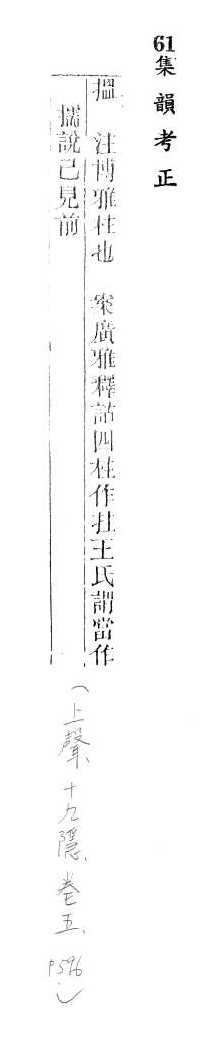 61集韻考正
搵　注博雅柱也　案廣雅釋詁四柱作拄王氏謂當作
擩說已見前
(上聲、十九隱、卷五、P596)